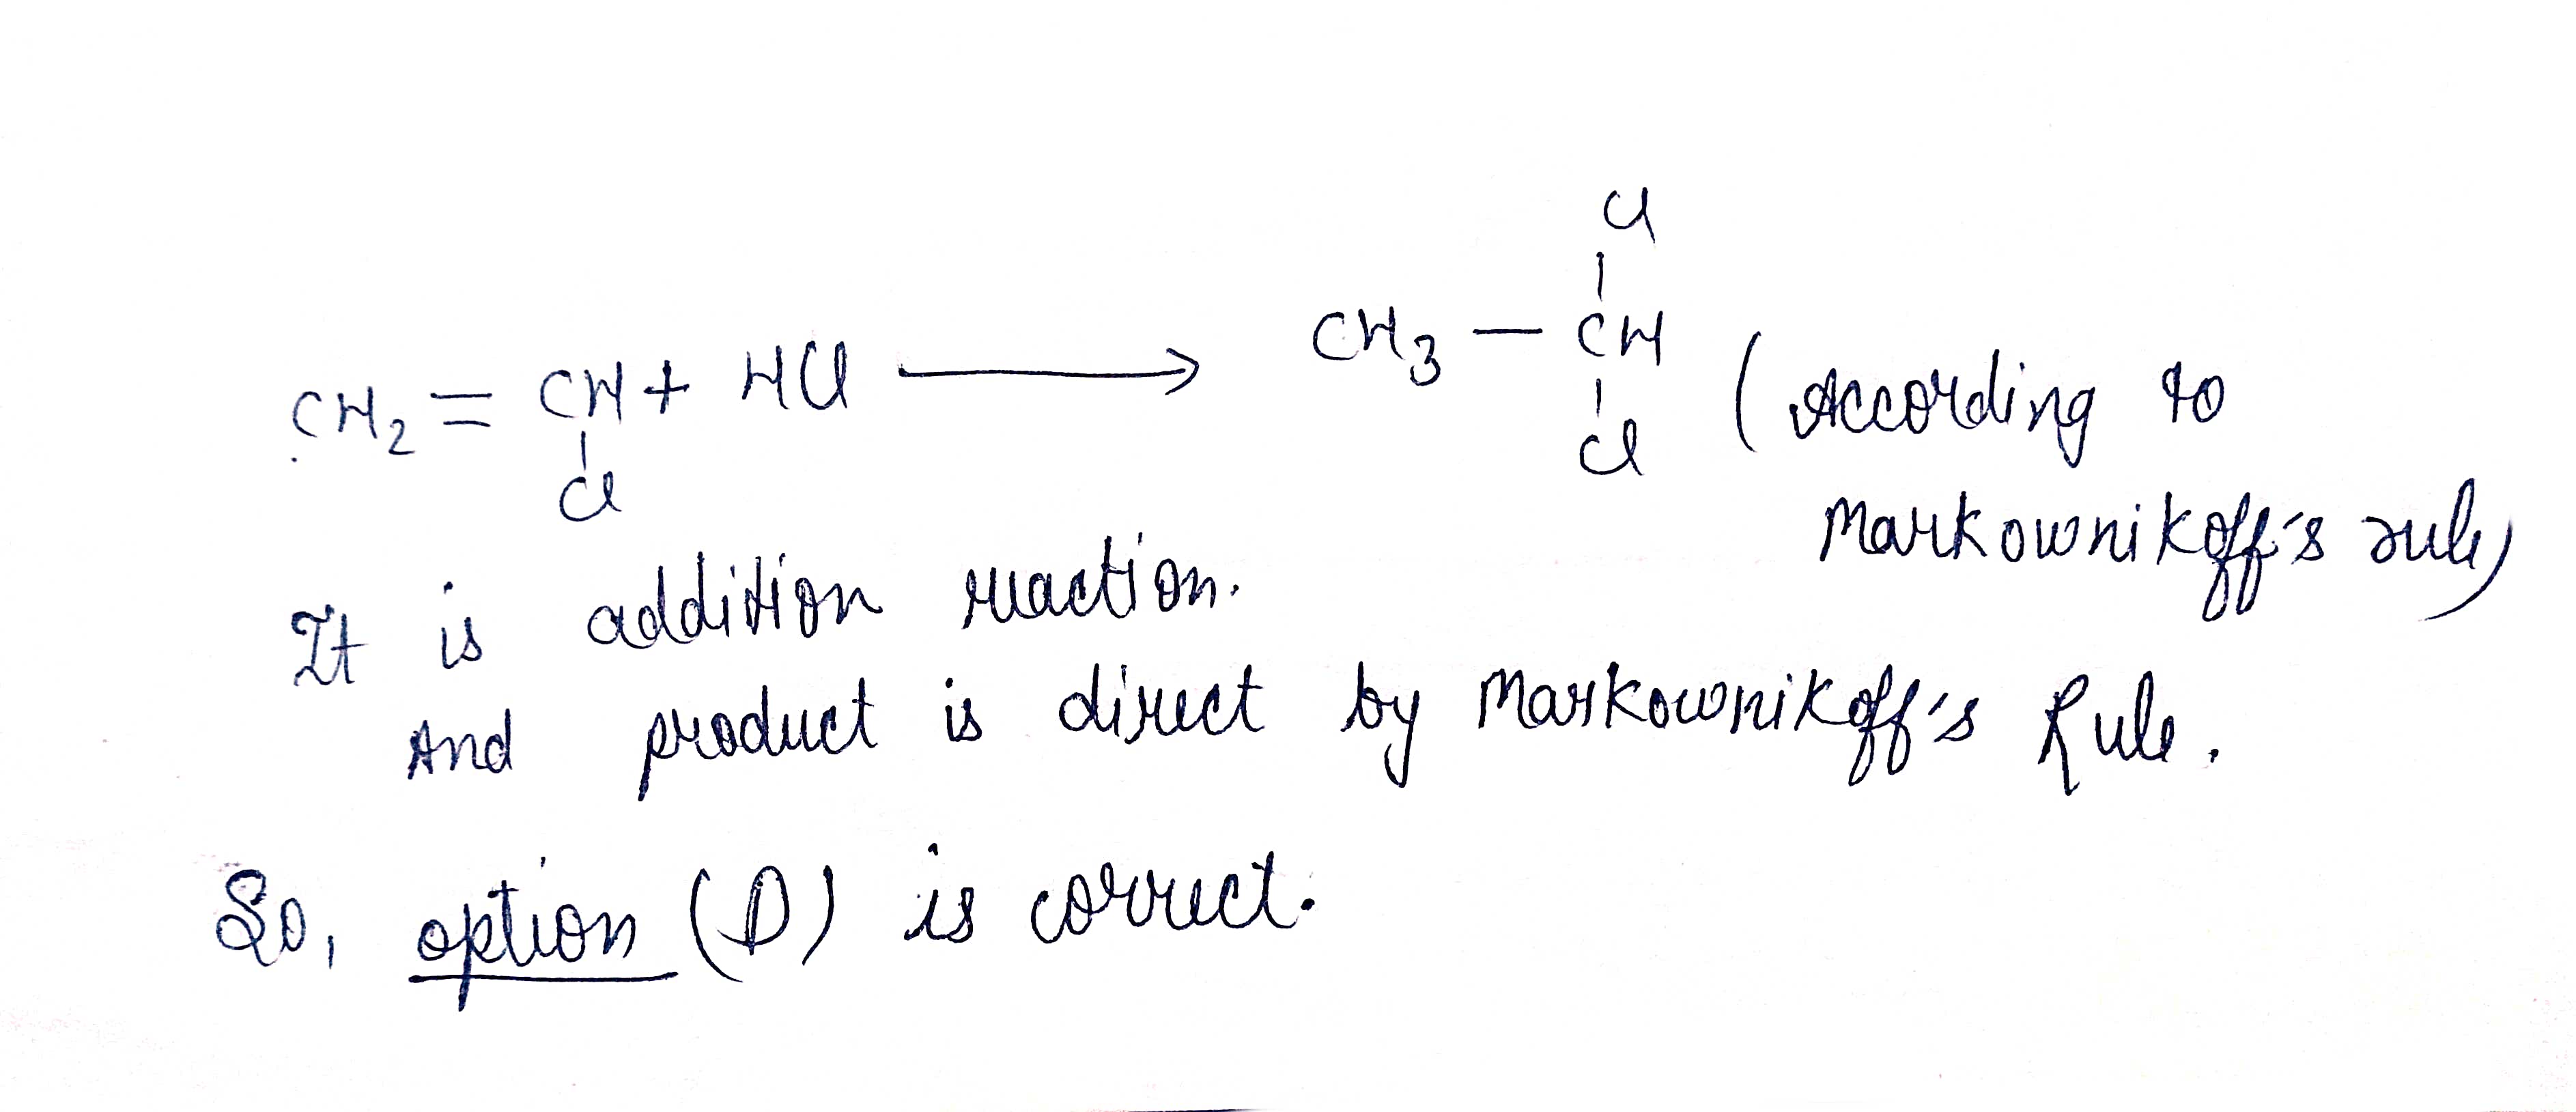 CH₂ = CH + HCl ⟶ CH₃ – CH (According to
Cl
Cl
Cl
Markownikoff's rule)
It is addition reaction.
And product is direct by Markownikoff's Rule.
So, option (D) is correct.